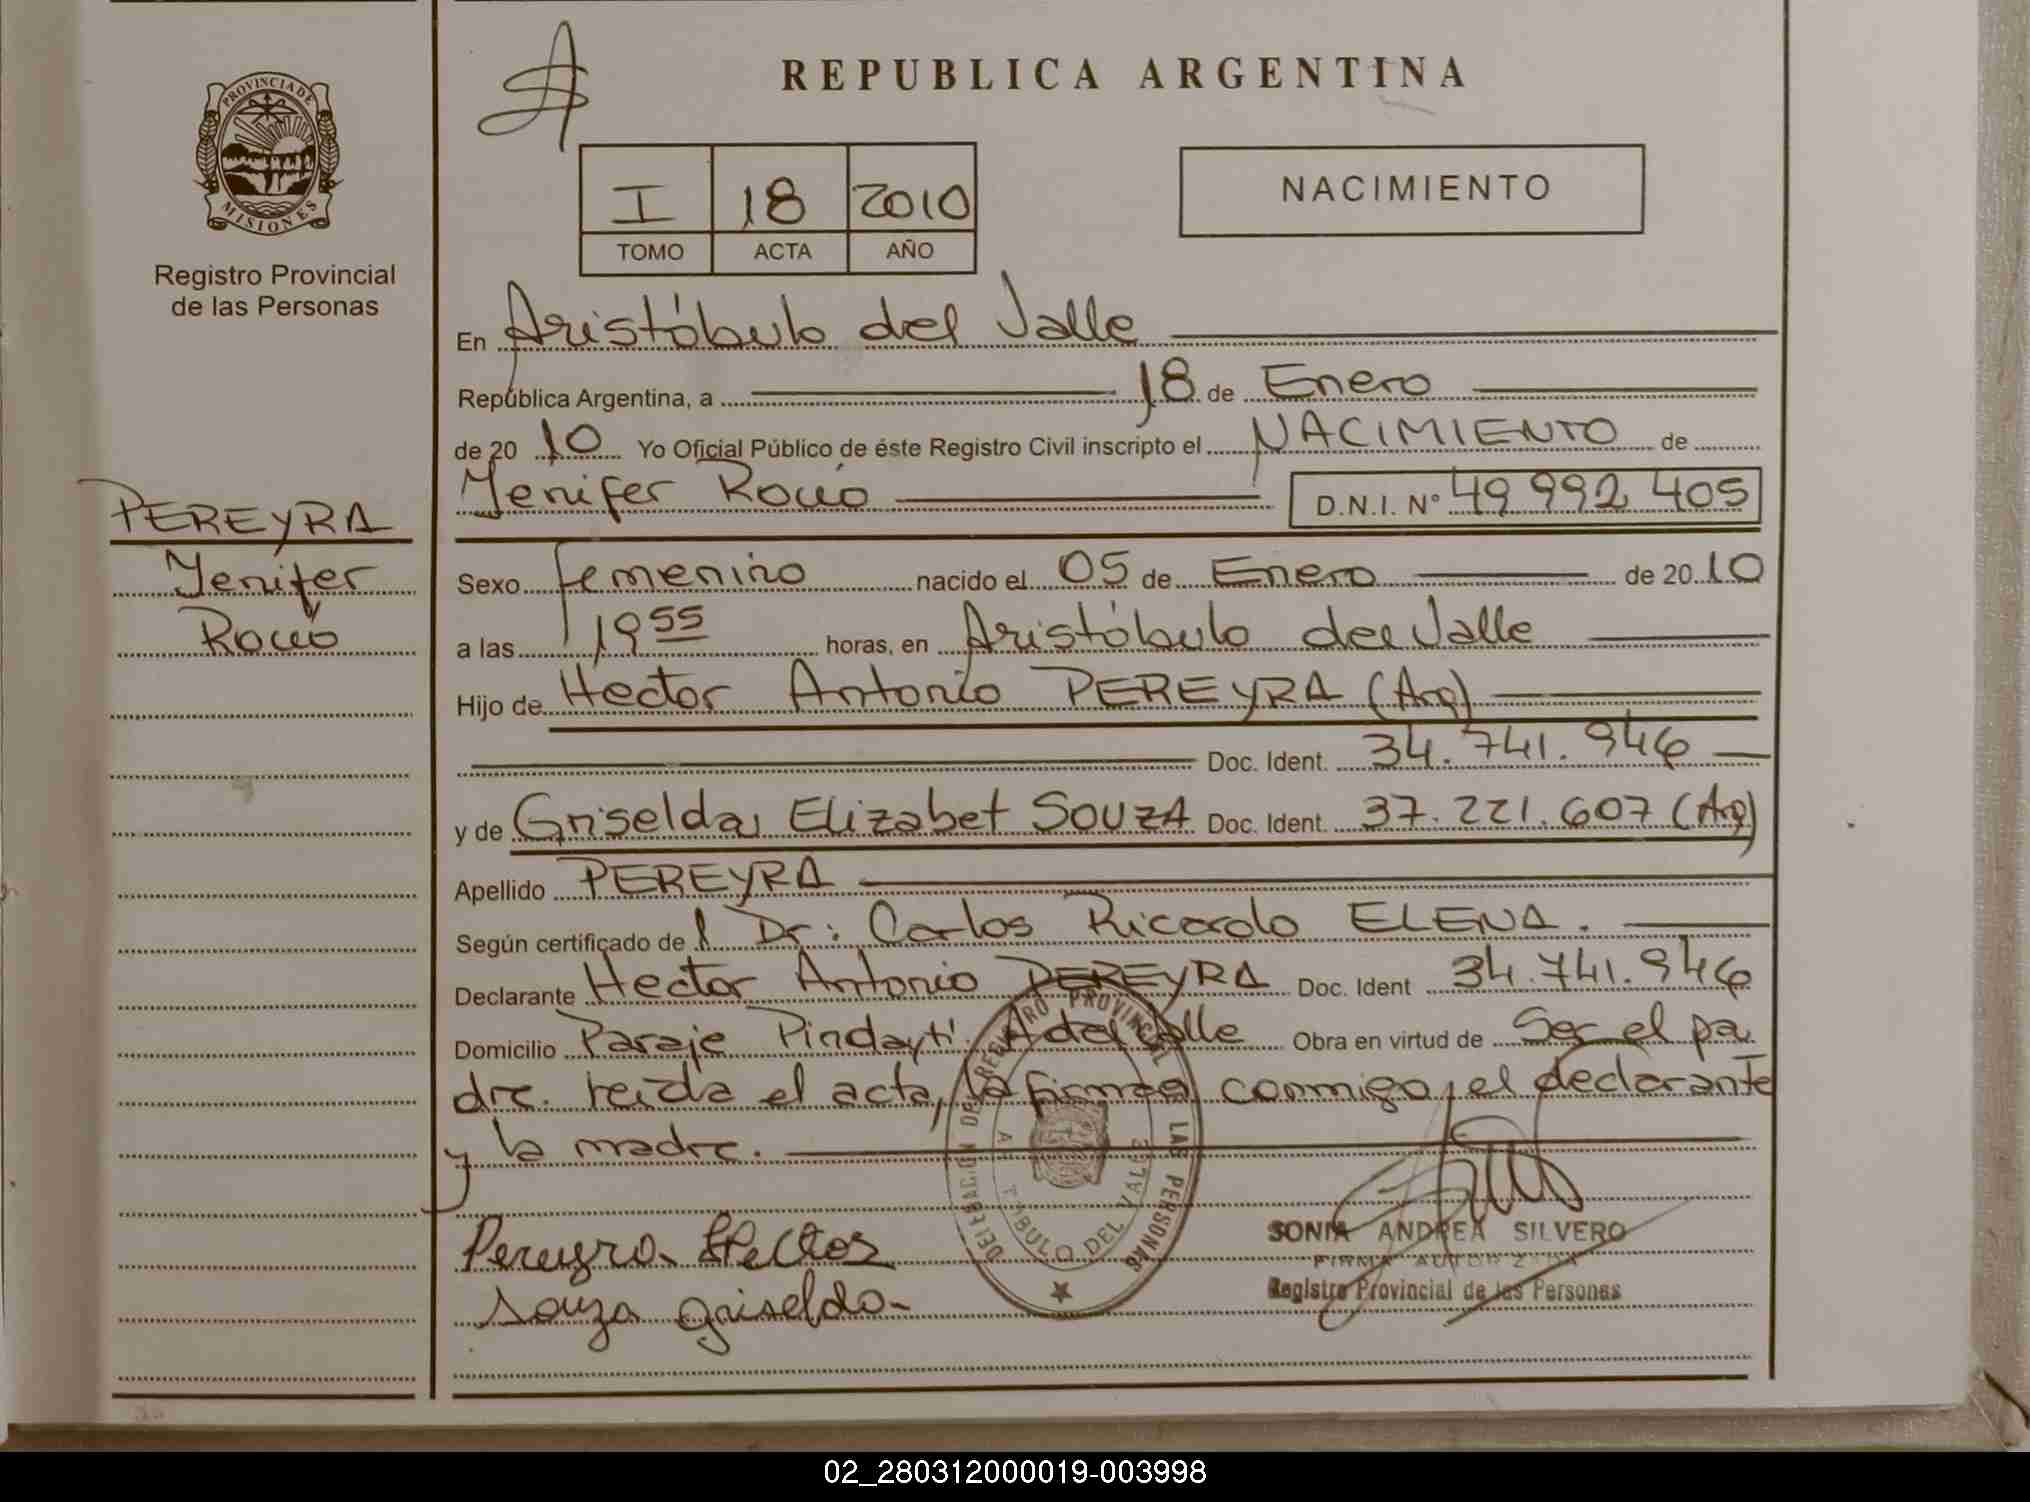 PROVINCIA DE
MISIONES
Registro Provincial
de las Personas
PEREYRA
Yenifer
Rocío
REPUBLICA ARGENTINA
I 18 2010
TOMO ACTA AÑO
NACIMIENTO
En Aristóbulo del Valle
República Argentina, a 18 de Enero
de 20 10 Yo Oficial Público de éste Registro Civil inscripto el NACIMIENTO de
Yenifer Rocío D.N.I. Nº 49 992 405
Sexo femenino nacido el 05 de Enero de 20 10
a las 19 55 horas, en Aristóbulo del Valle
Hijo de Hector Antonio PEREYRA (Arg)
Doc. Ident. 34.741.946
y de Griselda Elizabet SOUZA Doc. Ident. 37.221.607 (Arg)
Apellido PEREYRA
Según certificado de l Dr: Carlos Ricardo ELENA.
Declarante Hector Antonio PEREYRA Doc. Ident 34.741.946
Domicilio Paraje Pindaytí A del Valle Obra en virtud de Ser el pa
dre. Leída el acta, la firman conmigo, el declarante
y la madre.
DELEGACION DEL REGISTRO PROVINCIAL DE LAS PERSONAS
DEL VALLE
Pereyra Hector
Souza Griselda
SONIA ANDREA SILVERO
FIRMA AUTORIZADA
Registro Provincial de las Personas
02_280312000019-003998